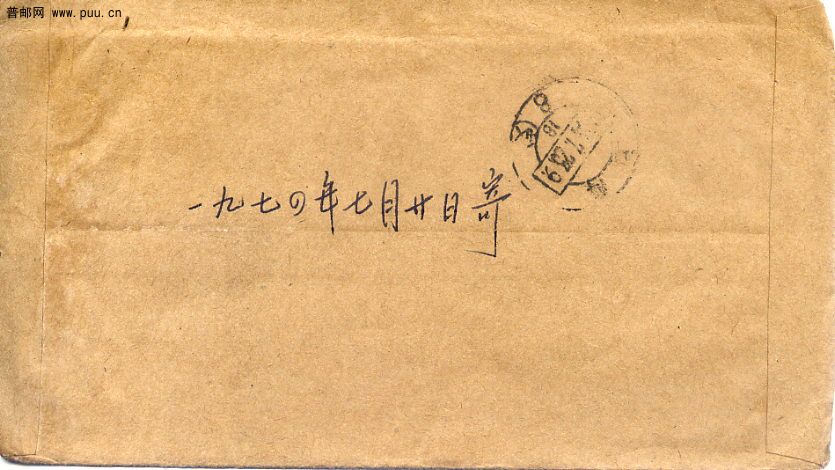 普邮网 www.puu.cn
一九七四年七月廿日寄